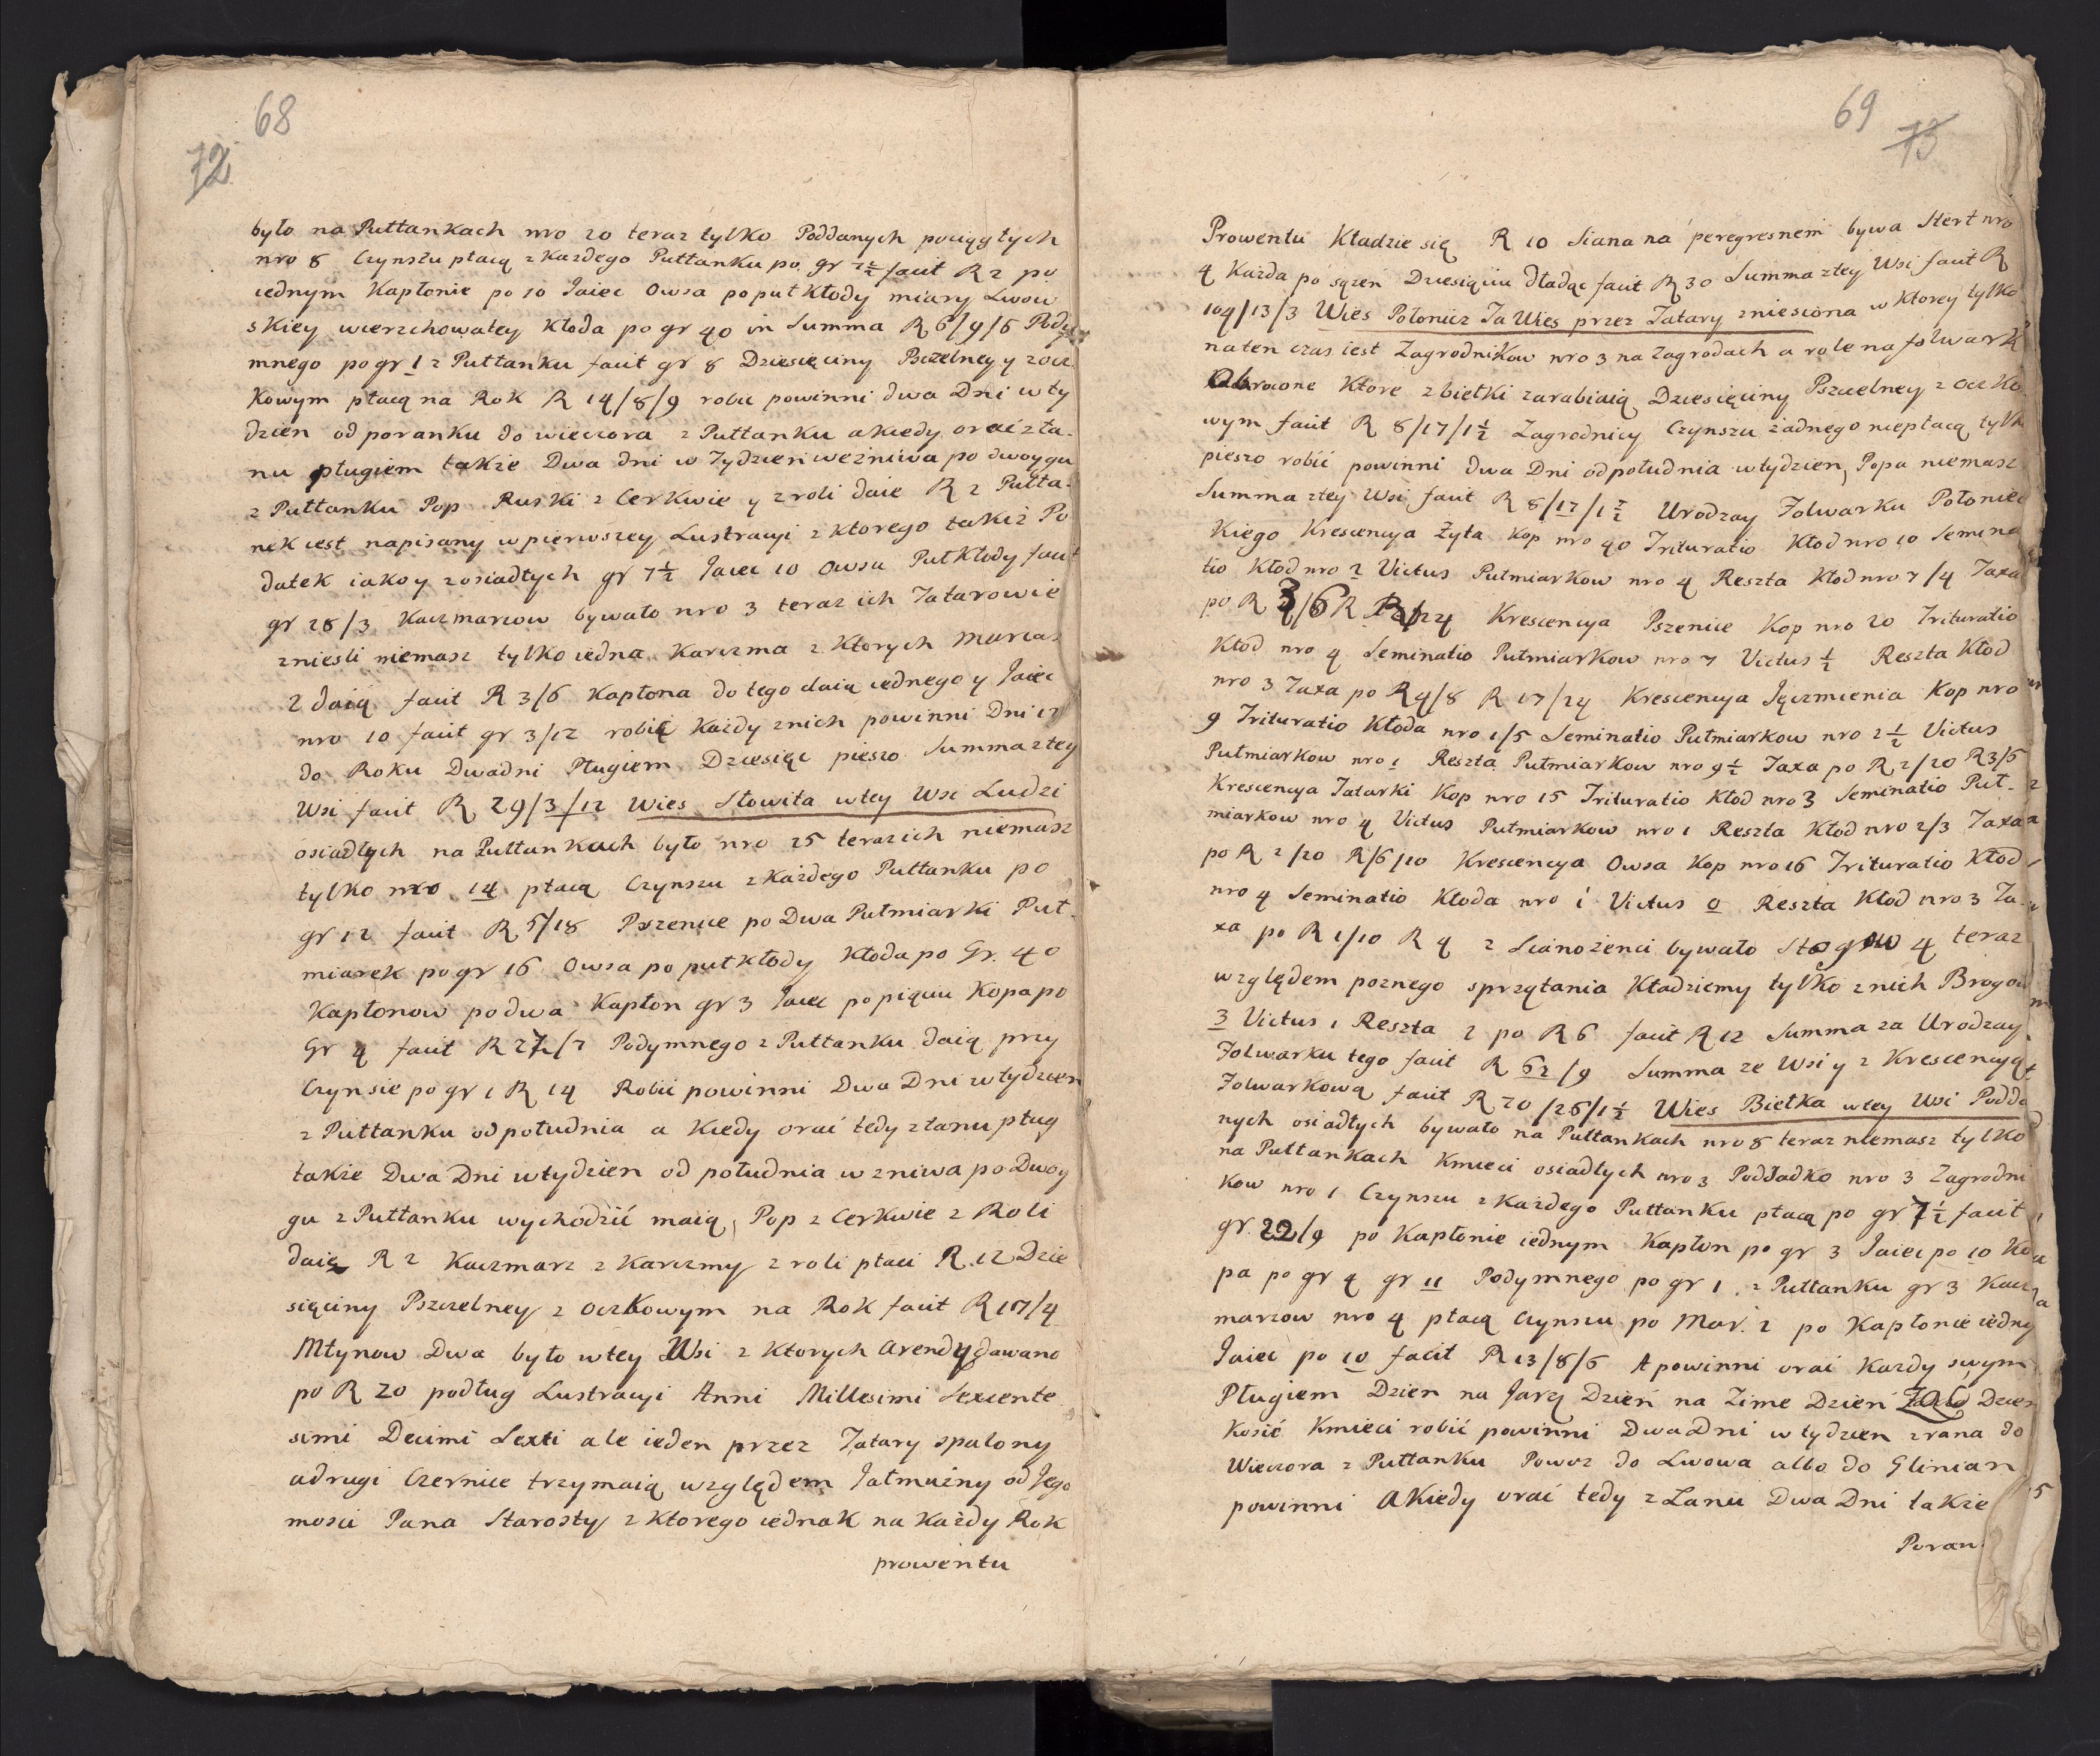 68
72
było na Pułłankach nro 20 teraz tylko Poddanych pociągłych
nro 8 Czynszu płacą z każdego Pułłanku po gr 7½ facit R 2 po
iednym Kapłonie po 10 Jaiec Owsa po puł Kłody miary Lwow
skiey wierzchowatey Kłoda po gr 40 in Summa R 6/9/6 Pody
mnego po gr 1 z Pułłanku facit gr 8 Dziesięciny Pszczelney y zocz
Kowym płacą na Rok R 14/8/9 robić powinni dwa Dni w ty
dzien od poranku do wieczora z Pułłanku a kiedy orać z ła
nu pługiem także Dwa dni w Tydzien we żniwa po dwoygu
z Pułłanku Pop Ruski z Cerkwie y z roli daie R 2 Pułła-
nek iest napisany w pierwszey Lustracyi z ktorego takiż Po
datek iako y z osiadłych gr 7½ Jaiec 10 Owsa Puł Kłody facit
gr 28/3 Kaczmarzow bywało nro 3 teraz ich Tatarowie
zniesli niemasz tylko iedna Karczma z Ktorych
2 daią facit R 3/6 Kapłona do tego daią iednego y Jaiec
nro 10 facit gr 3/12 robić Każdy z nich powinni Dni 12
do Roku Dwa dni Pługiem Dziesięc pieszo Summa z tey
Wsi facit R 29/3/12 Wies Słowita w tey Wsi Ludzi
osiadłych na Pułłankach było nro 25 teraz ich niemasz
tylko nro 14 płacą Czynszu z Każdego Pułłanku po
gr 12 facit R 5/18 Pszenice po Dwa Pułmiarki Puł-
miarek po gr 16 Owsa po puł kłody Kłoda po Gr. 40
Kapłonow po dwa Kapłon gr 3 Jaiec po piąciu Kopa po
Gr 4 facit R 27/2 Podymnego z Pułłanku daią przy
Czynsie po gr 1 R 14 Robić powinni Dwa Dni w tydzien
z Pułłanku od południa a Kiedy orać tedy z łanu pług
także Dwa Dni w tydzien od południa w zniwa po Dwoy
gu z Pułłanku wychodzić maią, Pop z Cerkwie z Roli
daią R 2 Kaczmarz z Karczmy z roli płaci R. 12 Dzie
sięciny Pszczelney z oczkowym na Rok facit R 17/4
Młynow Dwa było w tey Wsi z Ktorych Arendy dawano
po R 20 podług Lustracyi Anni Millesimi Sexcente
simi Decimi Sexti ale ieden przez Tatary spalony
a drugi Czernice trzymaią względem Jałmużny od Jego
mosci Pana Starosty z Ktorego iednak na Każdy Rok
prowentu
69
73
Prowentu Kładzie się R 10 Siana na peregresnem bywa Stert nro
4 Każda po sążen Dziesiąciu dładąc facit R 30 Summa z tey Wsi facit R
104/13/3 Wies Połonicz Ta Wies przez Tatary zniesiona w Ktorey tylko
na ten czas iest Zagrodnikow nro 3 na Zagrodach a role na folwark
Obrocone Ktore z bietki zarabiaią Dziesięciny Pszczelney z Oczko
wym facit R 8/17/1½ Zagrodnicy Czynszu żadnego niepłacą tylko
pieszo robić powinni dwa Dni od południa w tydzien, Popa niemasz
Summa z tey Wsi facit R 8/17/1½ Urodzay Folwarku Połonic
Kiego Krescencya Żyta Kop nro 40 Trituratio Kłod nro 10 Semina
tio Kłod nro 2 Victus Pułmiarkow nro 4 Reszta Kłod nro 7/4 Taxa
po R 3/6 R /24 Krescencya Pszenice Kop nro 20 Trituratio
Kłod nro 4 Seminatio Pułmiarkow nro 7 Victus ½ Reszta Kłod
nro 3 Taxa po R 4/8 R 17/24 Krescencya Jęczmienia Kop nro
9 Trituratio Kłoda nro 1/5 Seminatio Pułmiarkow nro 2½ Victus
Pułmiarkow nro 1 Reszta Pułmiarkow nro 9½ Taxa po R 2/20 R 3/5
Krescencya Tatarki Kop nro 15 Trituratio Kłod nro 3 Seminatio Puł-
miarkow nro 4 Victus Pułmiarkow nro 1 Reszta Kłod nro 2/3 Taxa
po R 2/20 R/6/20 Krescencya Owsa Kop nro 16 Trituratio Kłod
nro 4 Seminatio Kłoda nro 1 Victus 0 Reszta Kłod nro 3 Ta-
xa po R 1/10 R 4 z Sianożenci bywało Stogow 4 teraz
względem poznego sprzątania Kładziemy tylko z nich Brogow
3 Victus 1 Reszta 2 po R 6 facit R 12 Summa za Urodzay
Folwarku tego facit R 62/9 Summa ze Wsi y z Krescencyą
Folwarkową facit R 70/26/1½ Wies Bietka w tey Wsi Podda
nych osiadłych bywało na Pułłankach nro 8 teraz niemasz tylko
na Pułłankach Kmieci osiadłych nro 3 Podsadko nro 3 Zagrodni
Kow nro 1 Czynszu z Każdego Pułłanku płacą po gr 7½ facit
gr. 22/9 po Kapłonie iednym Kapłon po gr 3 Jaiec po 10 Ko
pa po gr 4 gr 11 Podymnego po gr 1 z Pułłanku gr 3 Kacz
marzow nro 4 płacą Czynszu po Mar. 2 po Kapłonie iedny
Jaiec po 10 facit R 13/8/6 A powinni orać Każdy swym
Pługiem Dzien na Jarz Dzień na Zime Dzień Dzien
Kosić Kmieci robić powinni Dwa Dni w tydzien z rana do
Wieczora z Pułłanku Powoz do Lwowa albo do Glinian
powinni A Kiedy orać tedy z Łanu Dwa Dni także
Poran